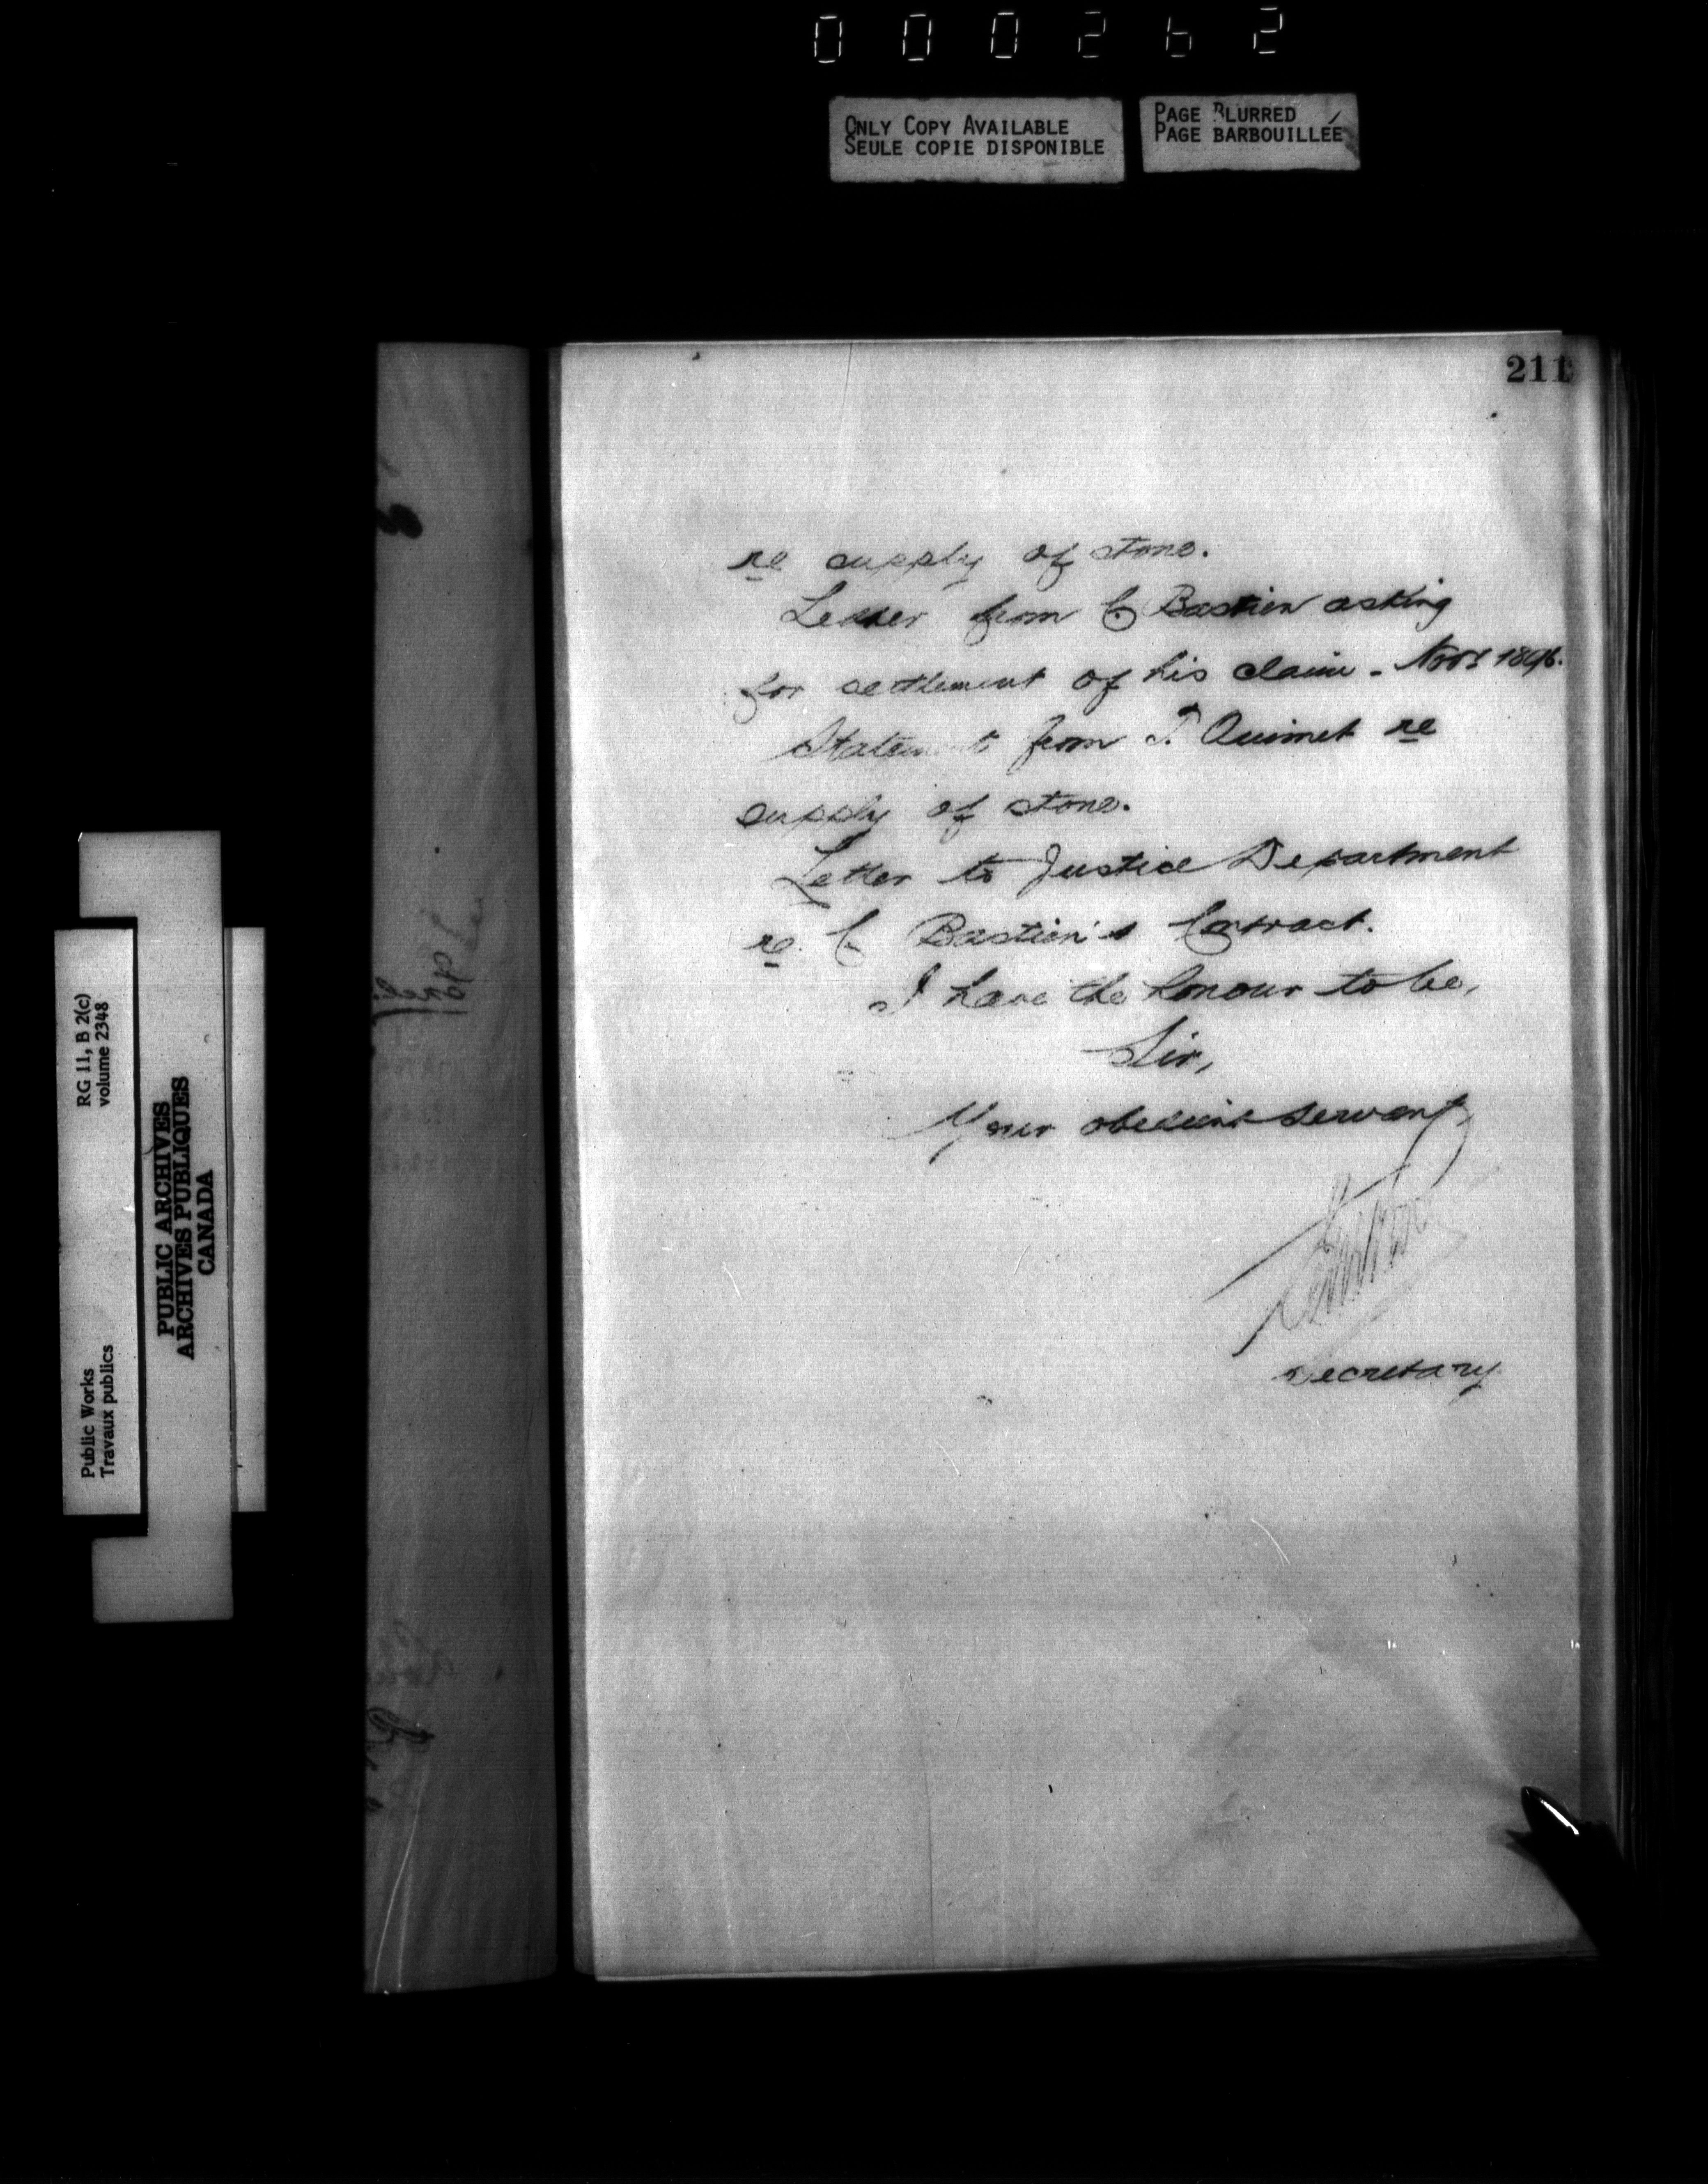 000262
ONLY COPY AVAILABLE
SEULE COPIE DISPONIBLE
PAGE BLURRED
PAGE BARBOUILLÉE
211
re supply of stone.
Letter from C Bastien asking
for settlement of his claim - Novr 1896.
Statement from T. Ouimet re
supply of stone.
Letter to Justice Department
re. C Bastien's Contract.
I have the honour to be,
Sir,
Your obedient servant,
Secretary
RG 11, B 2(c)
volume 2348
Public Works
Travaux publics
PUBLIC ARCHIVES
ARCHIVES PUBLIQUES
CANADA